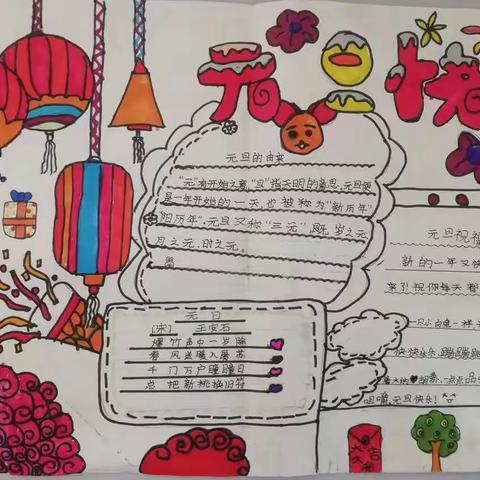 元旦快
元旦的由来
"元"有开始之意,"旦"指天明的意思,元旦便
是一年开始的一天,也被称为"新历年"
阳历年",元旦又称"三元",既岁之元
月之元,时之元。
元日
[宋] 王安石
爆竹声中一岁除
春风送暖入屠苏
千门万户曈曈日
总把新桃换旧符
元旦祝福
新的一年又快
来了!祝你每天都
只小白兔一样
快快乐乐 蹦蹦跳跳
一点点品
咀嚼,元旦快乐!